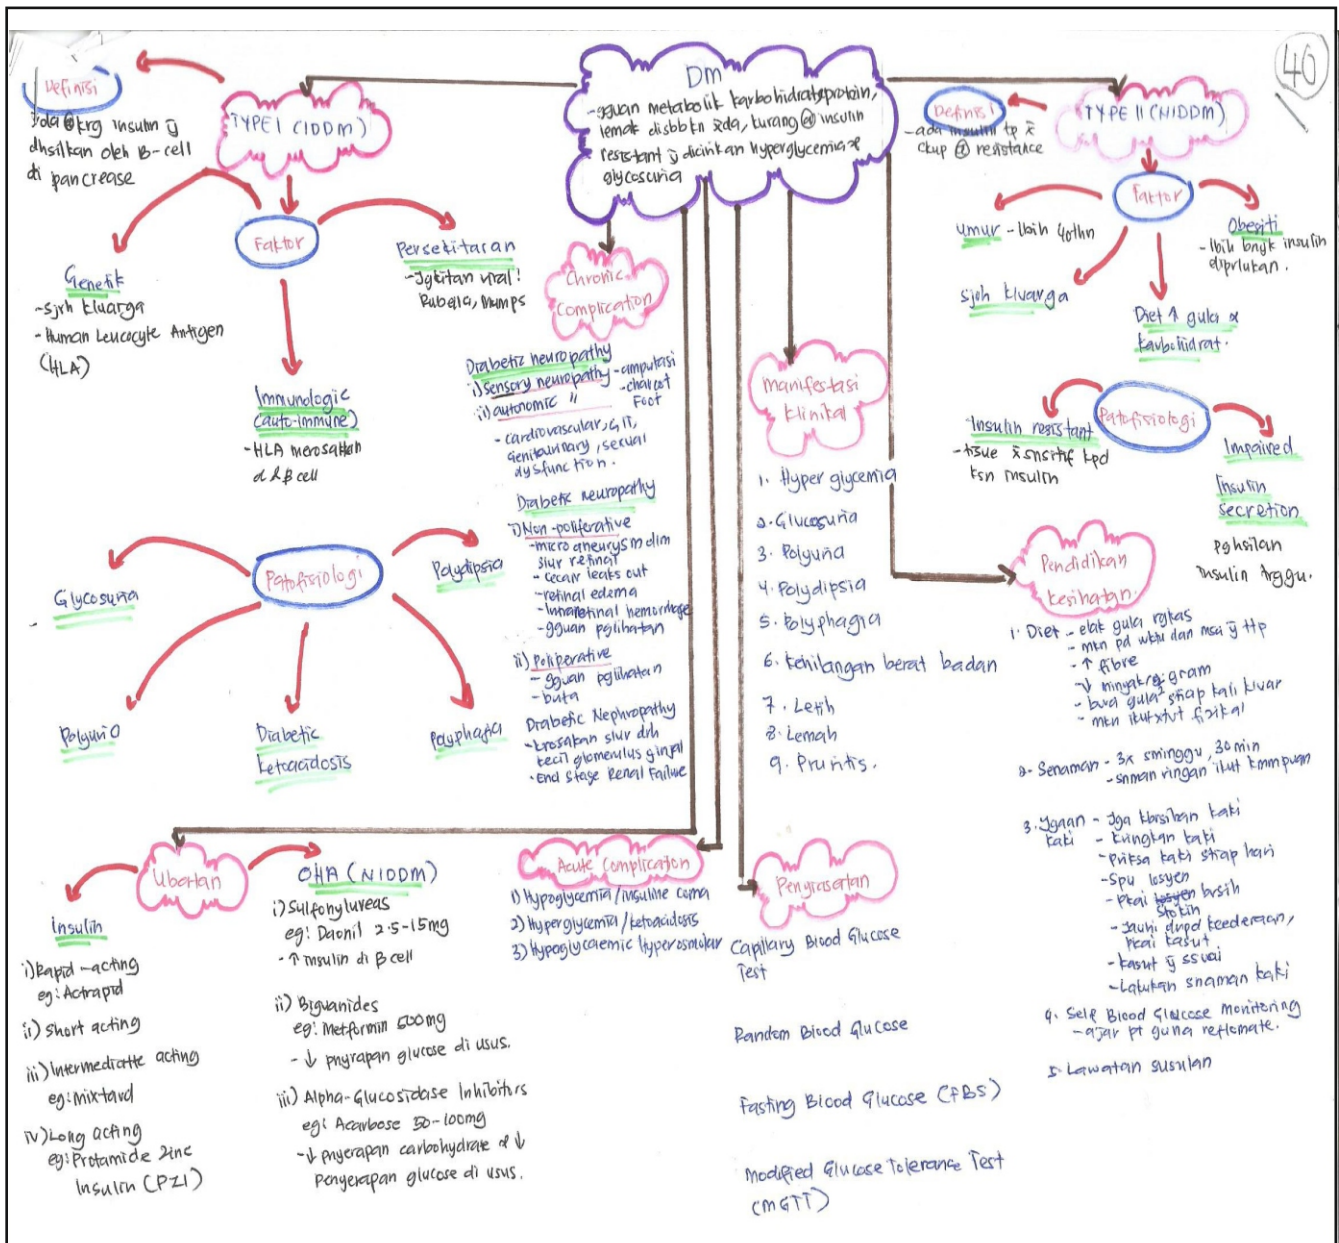 40
DM
-gguan metabolik karbohidrat, protein,
lemak disbbkn x̄da, kurang @ insulin
resistant ȳ dicirikan hyperglycemia &
glycosuria
Definisi
x̄da @ krg insulin ȳ
dhsilkan oleh B-cell
di pancrease
TYPE I (IDDM)
Faktor
Genetik
-sjrh kluarga
-Human Leucocyte Antigen
(HLA)
Persekitaran
-Jgkitan viral:
Rubella, mumps
Immunologic
(auto-immune)
-HLA merosakkan
β cell
Patofisiologi
Glycosuria
Polydipsia
Polyuria
Diabetic
ketoacidosis
Polyphagia
Chronic
Complication
Diabetic neuropathy
i) sensory neuropathy -amputasi
-charcot
Foot
ii) autonomic "
- cardiovascular, GIT,
genitourinary, sexual
dysfunction.
Diabetic neuropathy
i) Non-poliferative
-micro aneurysm dlm
slur retinal
- cecair leaks out
-retinal edema
-Intraretinal hemorrhage
-gguan pglihatan
ii) Poliperative
-gguan pglihatan
-buta
Diabetic Nephropathy
-krosakan slur drh
kecil glomerulus ginjal
-End Stage Renal Failure
Manifestasi
klinikal
1. Hyper glycemia
2. Glucosuria
3. Polyuria
4. Polydipsia
5. Polyphagia
6. Kehilangan berat badan
7. Letih
8. Lemah
9. Pruritis.
Definisi
-ada insulin tp x̄
ckup @ resistance
TYPE II (NIDDM)
Faktor
umur - lbih 40thn
sjrh kluarga
Diet ↑ gula &
karbohidrat.
Obesiti
- lbih bnyk insulin
diprlukan.
Patofisiologi
Insulin resistant
-tisue x̄ snsitif kpd
ksn insulin
Impaired
Insulin
Secretion
Pghsilan
insulin trggu.
Pendidikan
kesihatan.
1. Diet - elak gula rgkas
- mkn pd wktu dan msa ȳ ttp
- ↑ fibre
- ↓ minyak, garam
- bwa gula² stiap kali kluar
- mkn ikut xtvt fizikal
2. Senaman - 3x sminggu, 30 min
-snman ringan ikut kmmpuan
3. Jgaan
kaki
- Jga kbrsihan kaki
- kringkan kaki
-priksa kaki stiap hari
-Spu losyen
- Pkai losyen brsih
stokin
-Jauhi drpd kecederaan,
pkai kasut
-kasut ȳ ssuai
-Lakukan snaman kaki
4. Self Blood Glucose Monitoring
-ajar pt guna reflomate.
5. Lawatan susulan
Ubatan
Insulin
i) Rapid-acting
eg: Actrapid
ii) Short acting
iii) Intermediatte acting
eg: mixtard
iv) Long acting
eg: Protamide Zinc
Insulin (PZI)
OHA (NIDDM)
i) Sulfonylureas
eg: Daonil 2.5-15mg
- ↑ insulin di β cell
ii) Biguanides
eg: Metformin 500mg
- ↓ pnyrapan glucose di usus.
iii) Alpha-Glucosidase Inhibitirs
eg: Acarbose 50-100mg
-↓ pnyerapan carbohydrate & ↓
Penyerapan glucose di usus.
Acute Complication
1) Hypoglycemia/insuline coma
2) Hyperglycemia/ketoacidosis
3) Hypoglycaemic Hyperosmolar
Penyiasatan
Capillary Blood Glucose
Test
Random Blood Glucose
Fasting Blood Glucose (FBS)
Modified Glucose Tolerance Test
(MGTT)